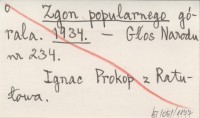 Zgon popularnego gó-
rala. 1934. — Głos Narodu
nr 234.
Ignac Prokop z Ratu-
łowa.